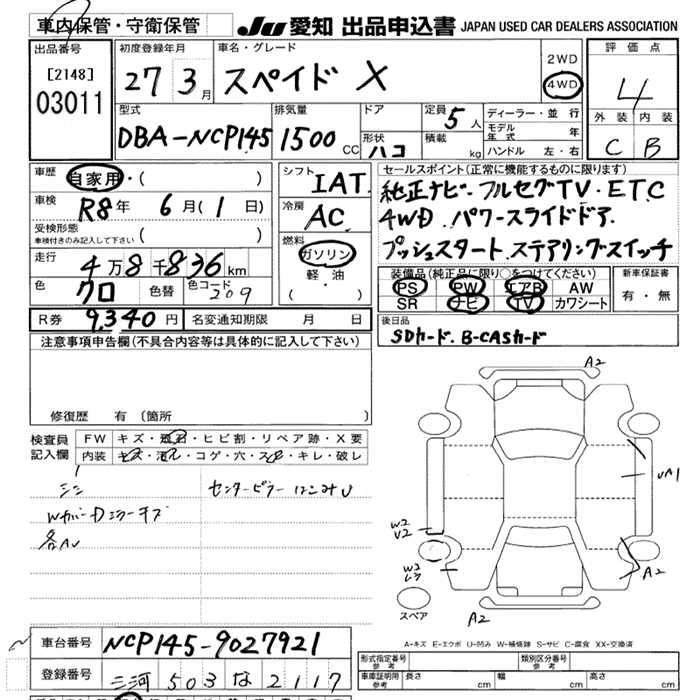 車内保管・守衛保管
JU 愛知 出品申込書 JAPAN USED CAR DEALERS ASSOCIATION
出品番号 初度登録年月 車名・グレード 2WD 評価点
[2148] 27 3月 スペイド X 4WD 4
03011 型式 排気量 ドア 定員 5人 ディーラー・並行 外装 内装
DBA-NCP145 1500cc 形状 ハコ 積載 kg モデル年式 年 C B
ハンドル 左・右
車歴 自家用・( ) シフト IAT セールスポイント(正常に機能するものに限ります)
車検 R8年 6月(1日) 冷房 AC 純正ナビ・フルセグTV・ETC
受検形態 車検付きのみ記入して下さい ( ) 4WD パワースライドドア
走行 4万8千836km 燃料 ガソリン プッシュスタート ステアリングスイッチ
色 クロ 色替 色コード 209 軽・油 ( )
装備品(純正品に限り○をつけてください) 新車保証書
PS PW エアB AW 有・無
SR ナビ TV カワシート
R券 9,340円 名変通知期限 月 日 後日品
SDカード、B-CASカード
注意事項申告欄(不具合内容等は具体的に記入して下さい)
修復歴 有(箇所
検査員記入欄 FW キズ・飛石・ヒビ割・リペア跡・X要
内装 キズ・汚レ・コゲ・穴・スレ・キレ・破レ
A2
UA1
W2
V2
W2
A2
A2
スペア
A-キズ E-エクボ U-凹み W-補修跡 S-サビ C-腐食 XX-交換済
車台番号 NCP145-9027921
登録番号 三河 503 な 2117
形式指定番号 参考 類別区分番号 参考
車庫証明用 参考 長さ cm 幅 cm 高さ cm